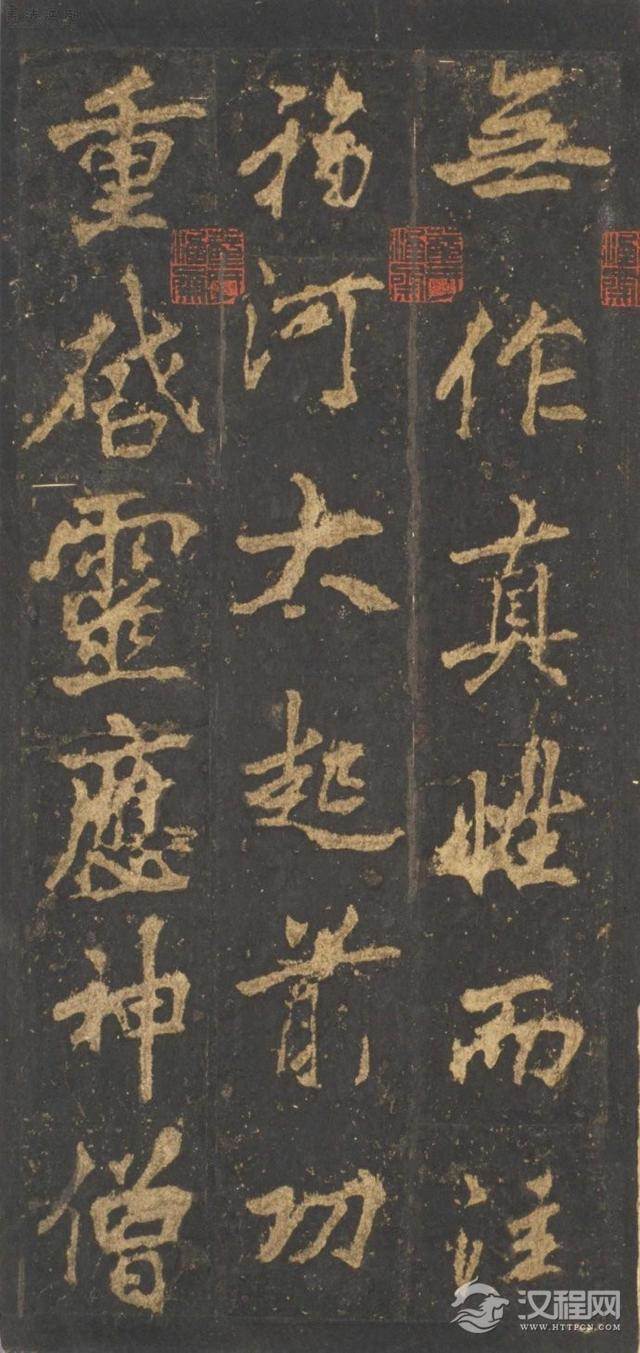 無作真性而注
福河太起前功
重啓靈應神僧
汉程网
WWW.HTTPCN.COM